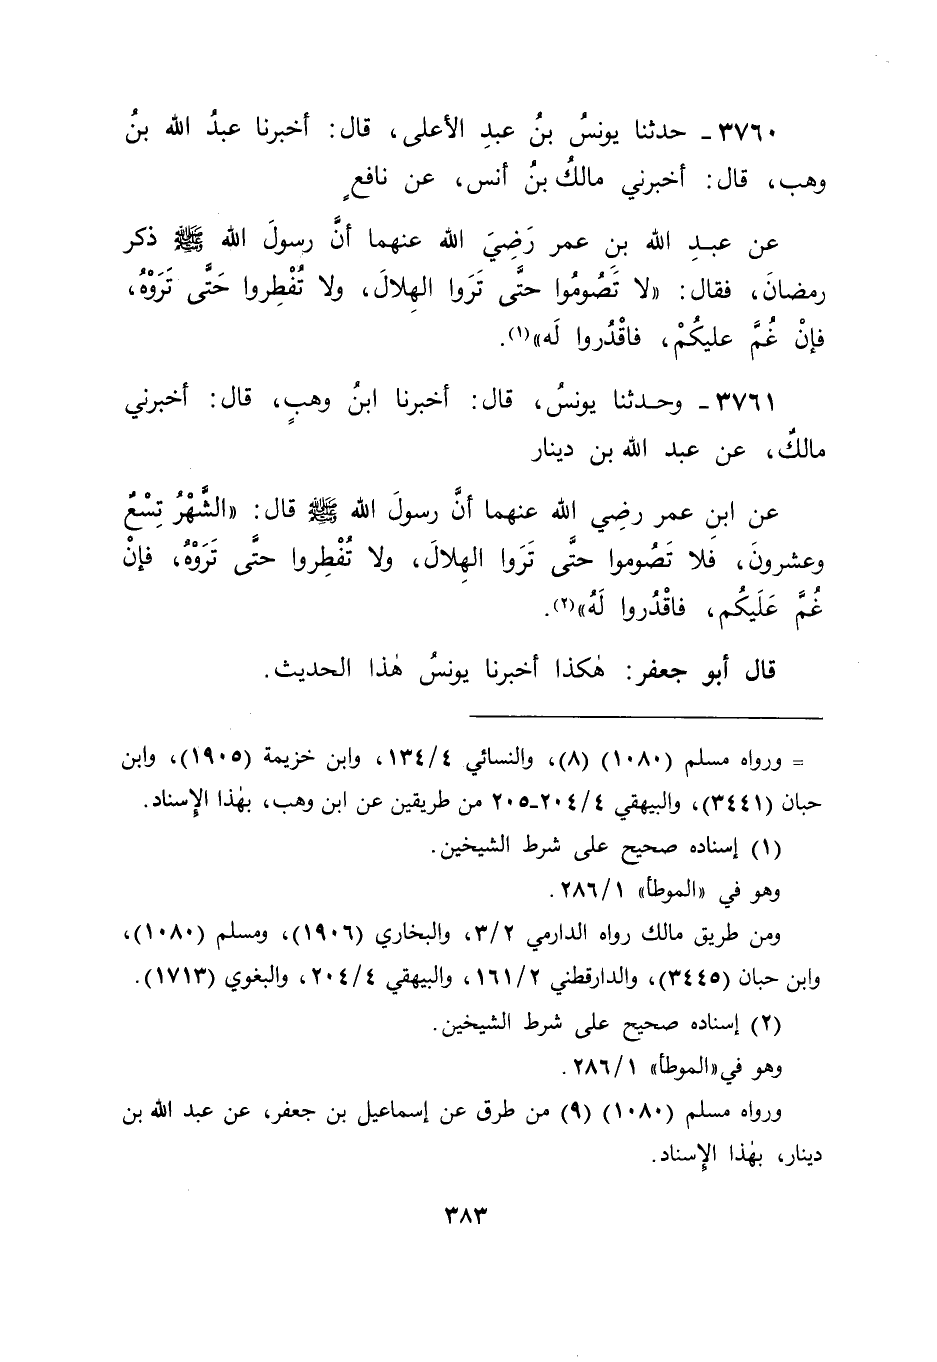 ٣٧٦٠ـ حدثنا يونسُ بنُ عبدِ الأعلى، قال: أخبرنا عبدُ الله بنُ
وهب، قال: أخبرني مالكُ بنُ أنس، عن نافعٍ
عن عبدِ الله بن عمر رَضِيَ الله عنهما أنَّ رسولَ الله ﷺ ذكر
رمضانَ، فقال: «لا تَصُومُوا حتَّى تَرَوا الهِلالَ، ولا تُفْطِروا حَتَّى تَرَوْهُ،
فإنْ غُمَّ عليكُمْ، فاقْدُروا لَه»(١).
٣٧٦١ـ وحدثنا يونسُ، قال: أخبرنا ابنُ وهبٍ، قال: أخبرني
مالكٌ، عن عبد الله بن دينار
عن ابنِ عمر رضِي الله عنهما أنَّ رسولَ الله ﷺ قال: «الشَّهْرُ تِسْعٌ
وعشرونَ، فلا تَصُوموا حتَّى تَرَوا الهِلالَ، ولا تُفْطِروا حتَّى تَرَوْهُ، فإنْ
غُمَّ عَلَيكُم، فاقْدُروا لَهُ»(٢).
قال أبو جعفر: هٰكذا أخبرنا يونسُ هٰذا الحديث.
= ورواه مسلم (١٠٨٠) (٨)، والنسائي ١٣٤/٤، وابن خزيمة (١٩٠٥)، وابن
حبان (٣٤٤١)، والبيهقي ٢٠٤/٤-٢٠٥ من طريقين عن ابن وهب، بهٰذا الإِسناد.
(١) إسناده صحيح على شرط الشيخين.
وهو في «الموطأ» ٢٨٦/١.
ومن طريق مالك رواه الدارمي ٣/٢، والبخاري (١٩٠٦)، ومسلم (١٠٨٠)،
وابن حبان (٣٤٤٥)، والدارقطني ١٦١/٢، والبيهقي ٢٠٤/٤، والبغوي (١٧١٣).
(٢) إسناده صحيح على شرط الشيخين.
وهو في«الموطأ» ٢٨٦/١.
ورواه مسلم (١٠٨٠) (٩) من طرق عن إسماعيل بن جعفر، عن عبد الله بن
دينار، بهٰذا الإِسناد.
٣٨٣